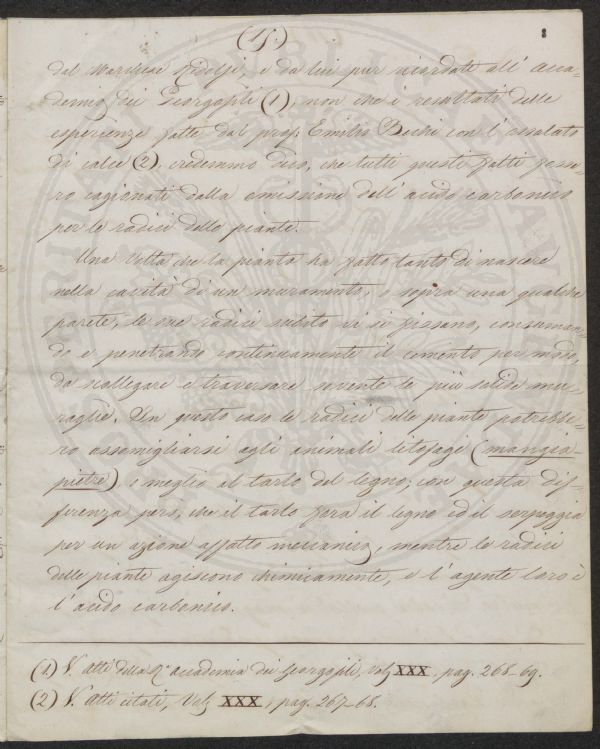 (15.)
8
dal Marchese Ridolfi, e da lui pur ricordate all' Acca-
demia dei Georgofili (1), non che i resultati delle
esperienze fatte dal prof. Emilio Bechi con l' ossalato
di calce (2) credemmo dico, che tutti questi fatti fosse-
ro cagionati dalla emissione dell' acido carbonico
per le radici delle piante.
Una volta che la pianta ha fatto tanto di nascere
nella cavità di un muramento, o sopra una qualche
parete, le sue radici subito vi si fissano, consuman-
do e penetrando continuamente il cemento per modo,
da scollegare e traversare sovente le più solide mu-
raglie. In questo caso le radici delle piante potrebbe-
ro assomigliarsi agli animali litofagi (mangia-
pietre) e meglio al tarlo del legno; con questa dif-
ferenza però, che il tarlo fora il legno ed il serpeggia
per un azione affatto meccanica, mentre le radici
delle piante agiscono chimicamente, e l' agente loro è
l' acido carbonico.
(1) V. Atti della R. Accademia dei Georgofili, Vol. XXX. pag. 268-69.
(2) V. Atti citati, Vol. XXX, pag. 267-68.